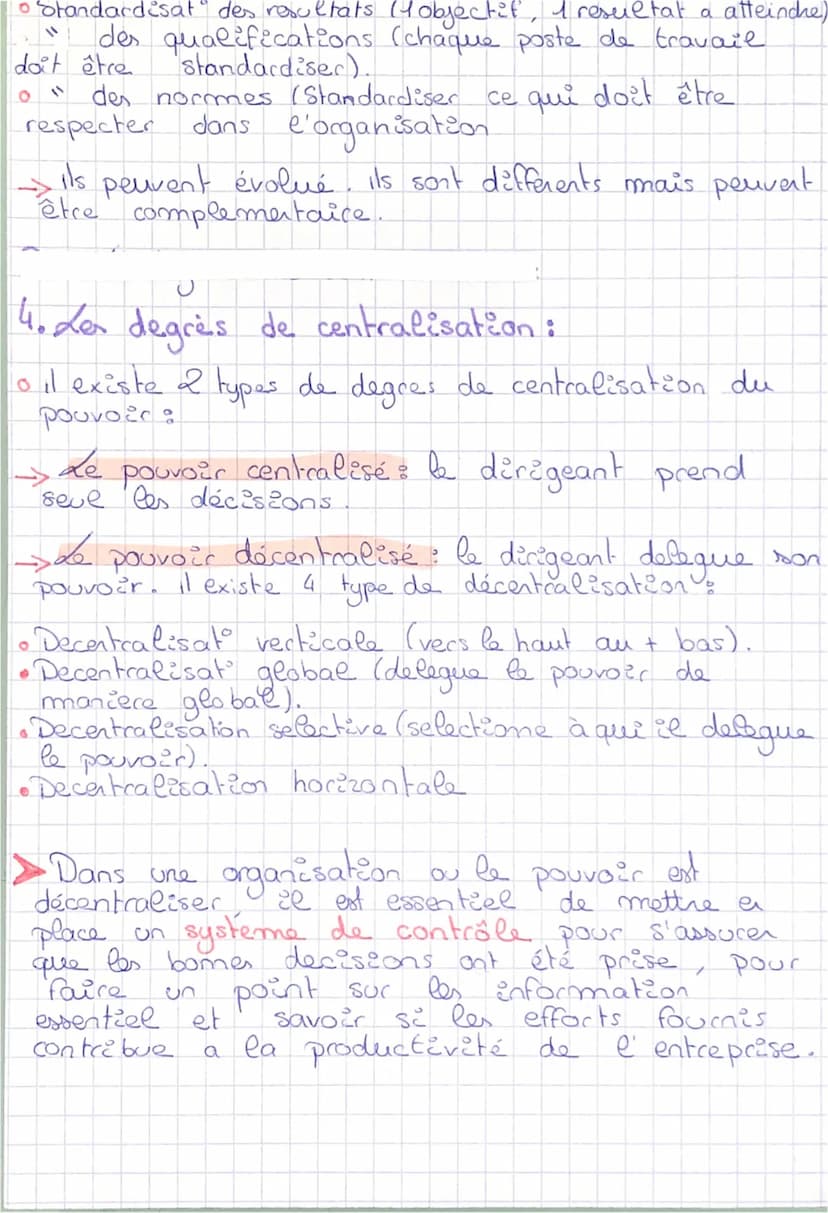 o Standardisat° des resultats (1 objectif, 1 resultat a atteindre)
" des qualifications (chaque poste de travail
doit être standardiser).
o " des normmes (Standardiser ce qui doit être
respecter dans l'organisation
→ ils peuvent évolué. ils sont différents mais peuvent
être complementaire.
4. Les degrès de centralisation :
o il existe 2 types de degres de centralisation du
pouvoir :
→ Le pouvoir centralisé : le dirigeant prend
seul les décisions.
→ Le pouvoir décentralisé : le dirigeant delegue son
pouvoir. il existe 4 type de décentralisation :
• Decentralisat° verticale (vers le haut au + bas).
• Decentralisat° global (delegue le pouvoir de
maniere global).
• Decentralisation selective (selectionne à qui il delegue
le pouvoir).
• Decentralisation horizontale
➤ Dans une organisation ou le pouvoir est
décentraliser, il est essentiel de mettre en
place un système de contrôle pour s'assurer
que les bonnes decisions ont été prise, pour
faire un point sur les information
essentiel et savoir si les efforts fournis
contribue a la productivité de l'entreprise.